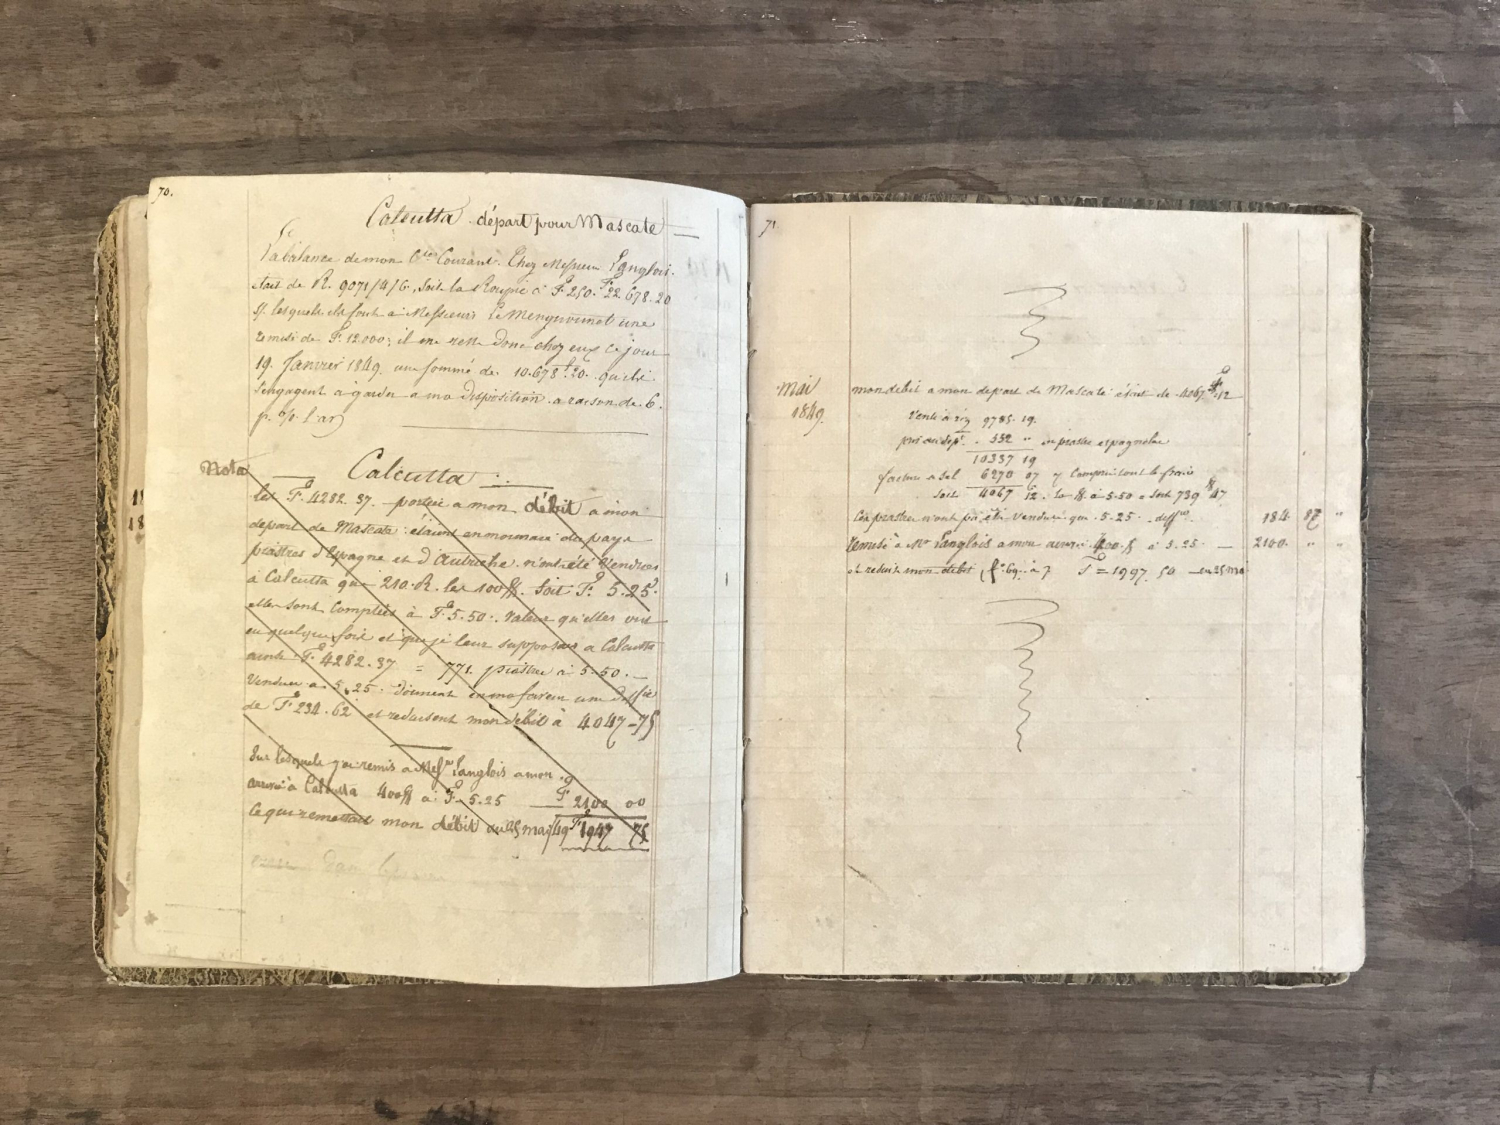 70.
Calcutta départ pour Mascate
La balance de mon Cte Courant Chez Messieurs Langlois
était de R. 9071/4/6, soit la Roupie à F. 250. F. 22.678.20
sur lesquels ils font à Messieurs une
remise de F. 12.000; il me reste donc chez eux ce jour
19 Janvier 1849 une somme de 10.678 f. 20. qu'ils
s'engagent à garder à ma disposition à raison de 6.
p. % l'an
Nota
Calcutta
les F. 4282.37. portés à mon débit à mon
départ de Mascate étaient en monnaie du pays
piastres d'Espagne et d'Autriche n'ont été vendues
à Calcutta que 210. R. les 100 soit F. 5.25.
elles sont comptées à F. 5.50. valeur qu'elles ont
quelque fois et que je leur supposais à Calcutta
F. 4282.37 = 771 piastres à 5.50.
Vendues à 5.25. donnent en ma faveur une diffce
de F. 234.62 et réduisent mon débit à 4047-75
Sur lesquels j'ai remis à Messrs Langlois à mon
arrivée à Calcutta 400 à F. 5.25 F. 2100 00
Ce qui remettait mon débit au 25 mai 49 F. 1947 75
71
Mai
1849.
mon débit à mon départ de Mascate était de 4067. F. 12
Vente à riz 9785.19.
552 " en piastres espagnoles
10337 19
facture à sel 6270 07 y compris tout le frais
soit 4067 12. la à 5.50 = soit 739 47
Les piastres n'ont pas été vendues que 5.25. diffce 184 87 "
Remise à Mr Langlois à mon arrivée 400. à 5.25 — 2100. " "
et réduit mon débit fo 69. à 7 = 1997.50 — au 25 mai